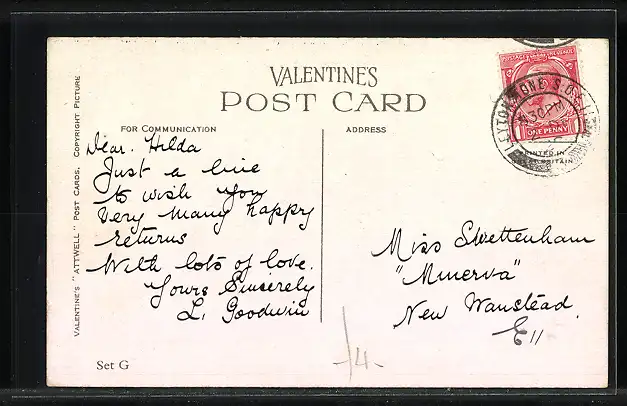 VALENTINE'S
POST CARD
FOR COMMUNICATION
ADDRESS
VALENTINE'S "ATTWELL" POST CARDS. COPYRIGHT PICTURE
Dear. Hilda
Just a line
to wish you
Very many happy
returns
With lots of love.
Yours Sincerely
L. Goodwin
Set G
POSTAGE REVENUE
ONE PENNY
LEYTONSTONE S.O.
PRINTED IN
GREAT BRITAIN
Miss Swettenham
"Minerva"
New Wanstead.
E 11
/4.